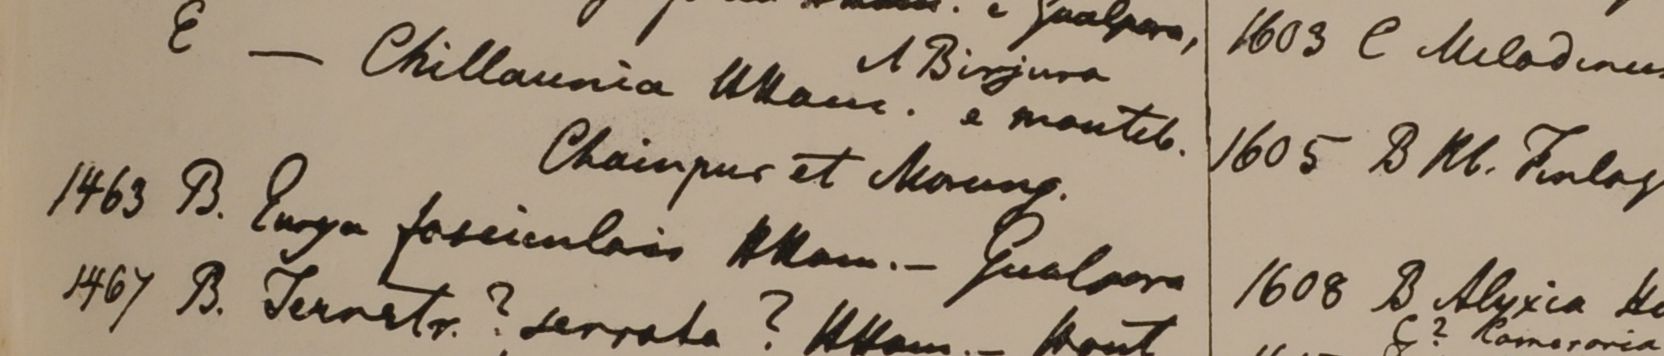 e Gualpara,
E — Chillaunia HHam. A Birjura
e montib.
Chainpur et Morung.
1463 B. Eurya fascicularis HHam. — Gualpara
1467 B. Ternstr.? serrata? HHam. —
1603 C Melodinus
1605 B Hb. Finlay
1608 B Alyxia
C? Cameraria